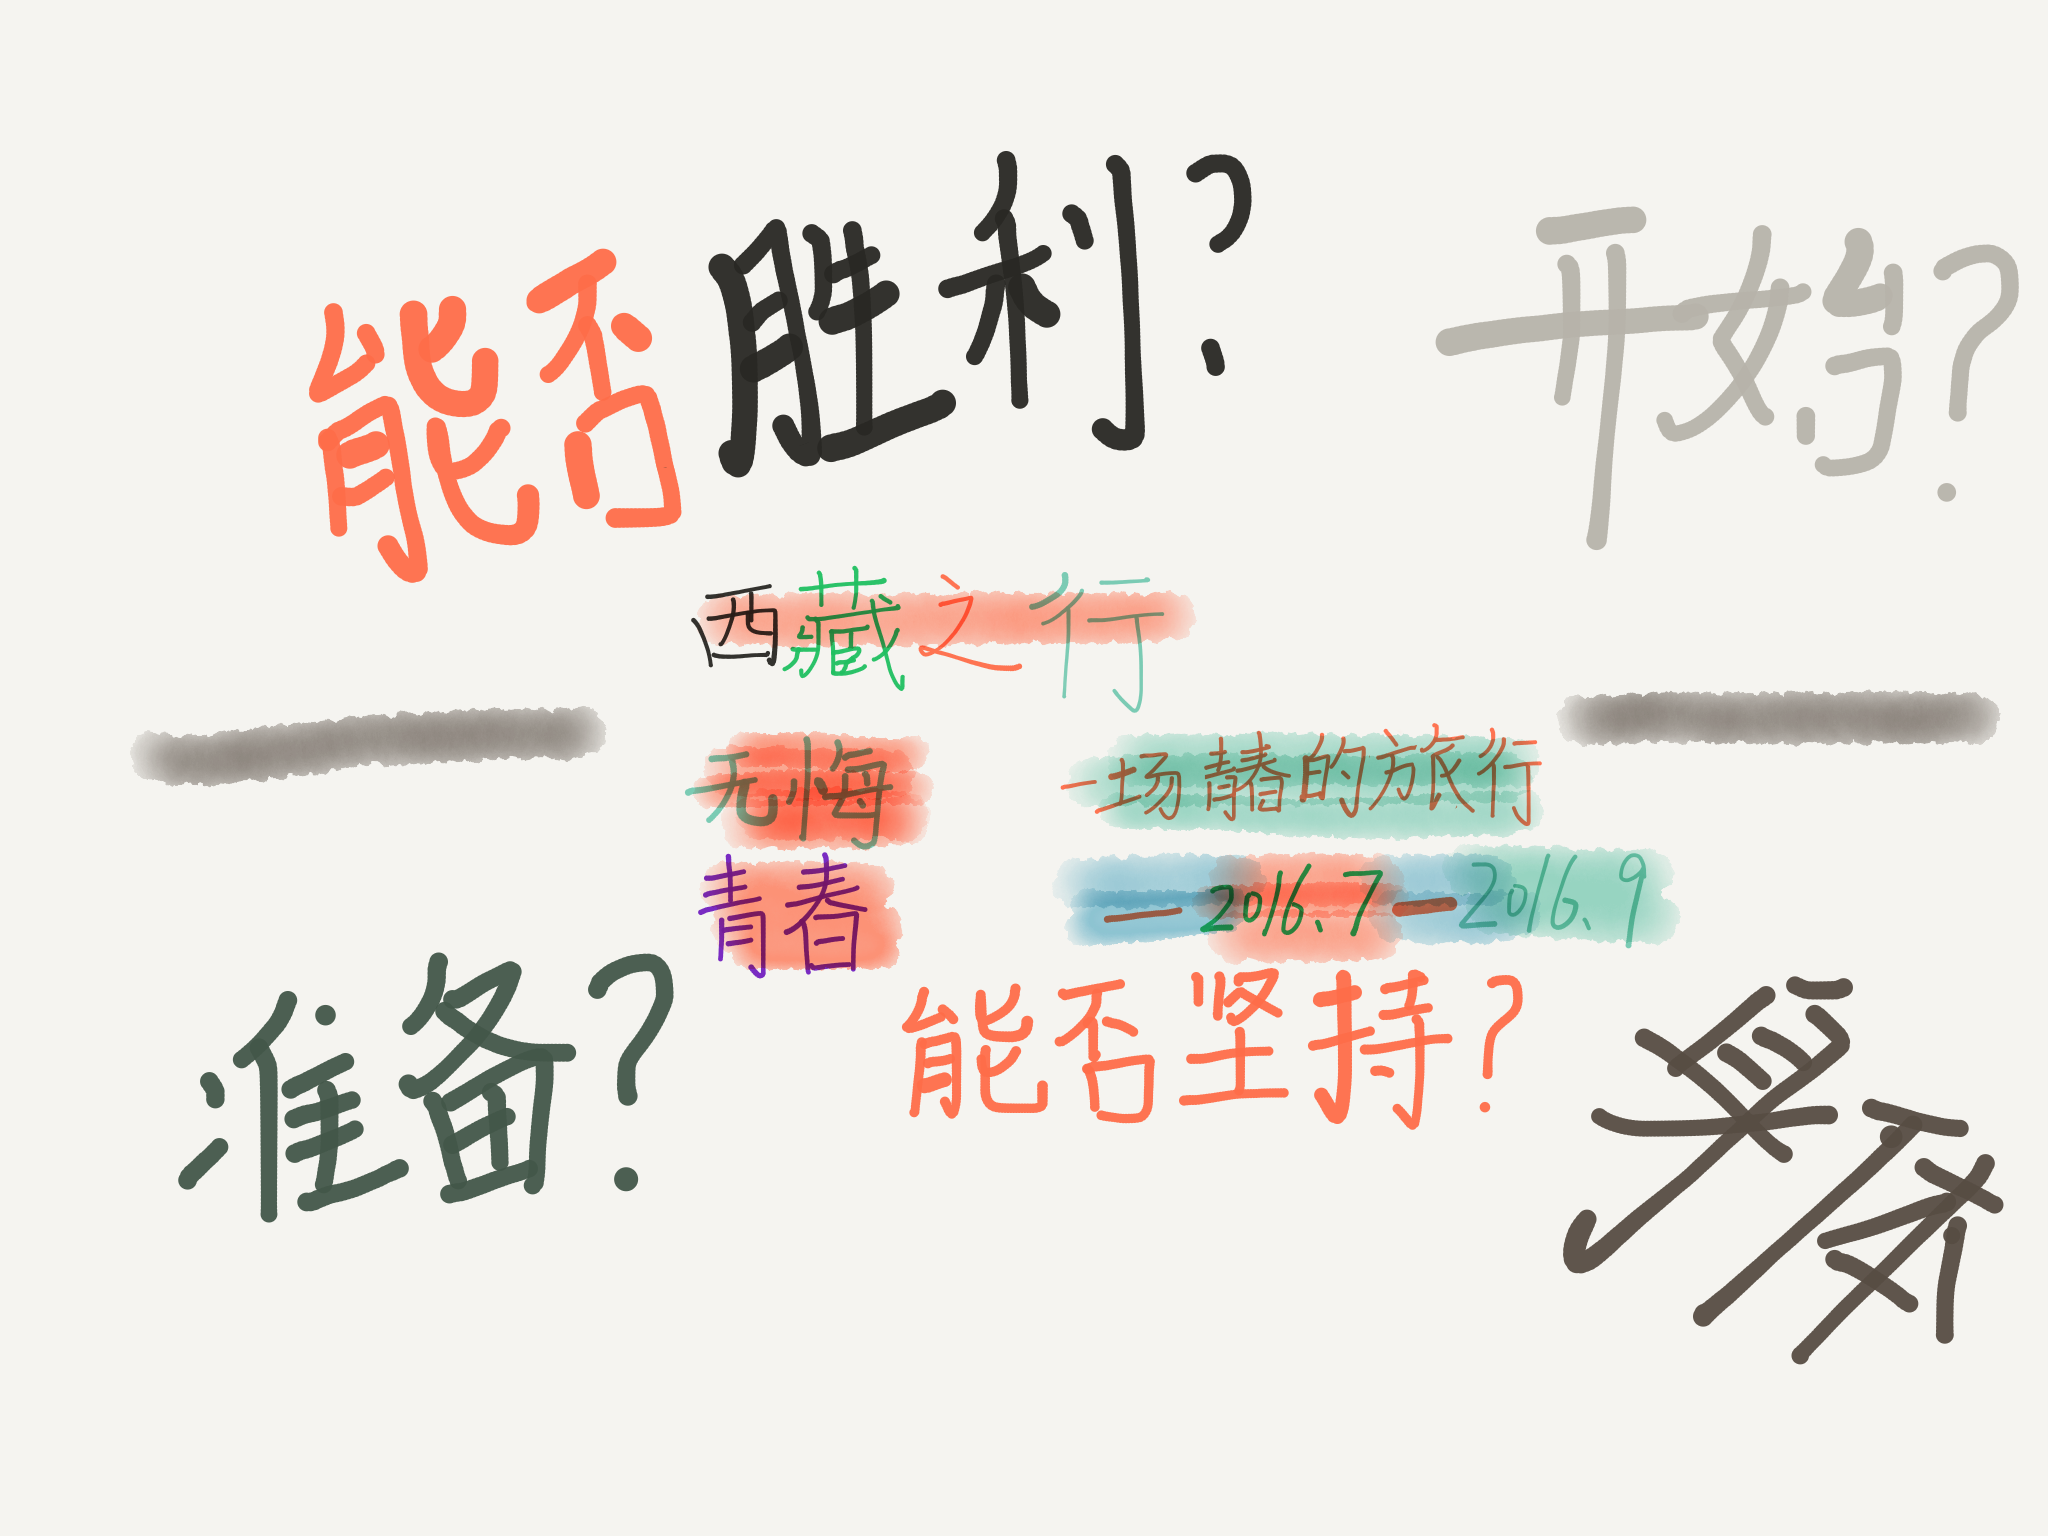 能否胜利?
开始?
西藏之行
无悔
青春
一场青春的旅行
—2016.7—2016.9
准备?
能否坚持?
身体